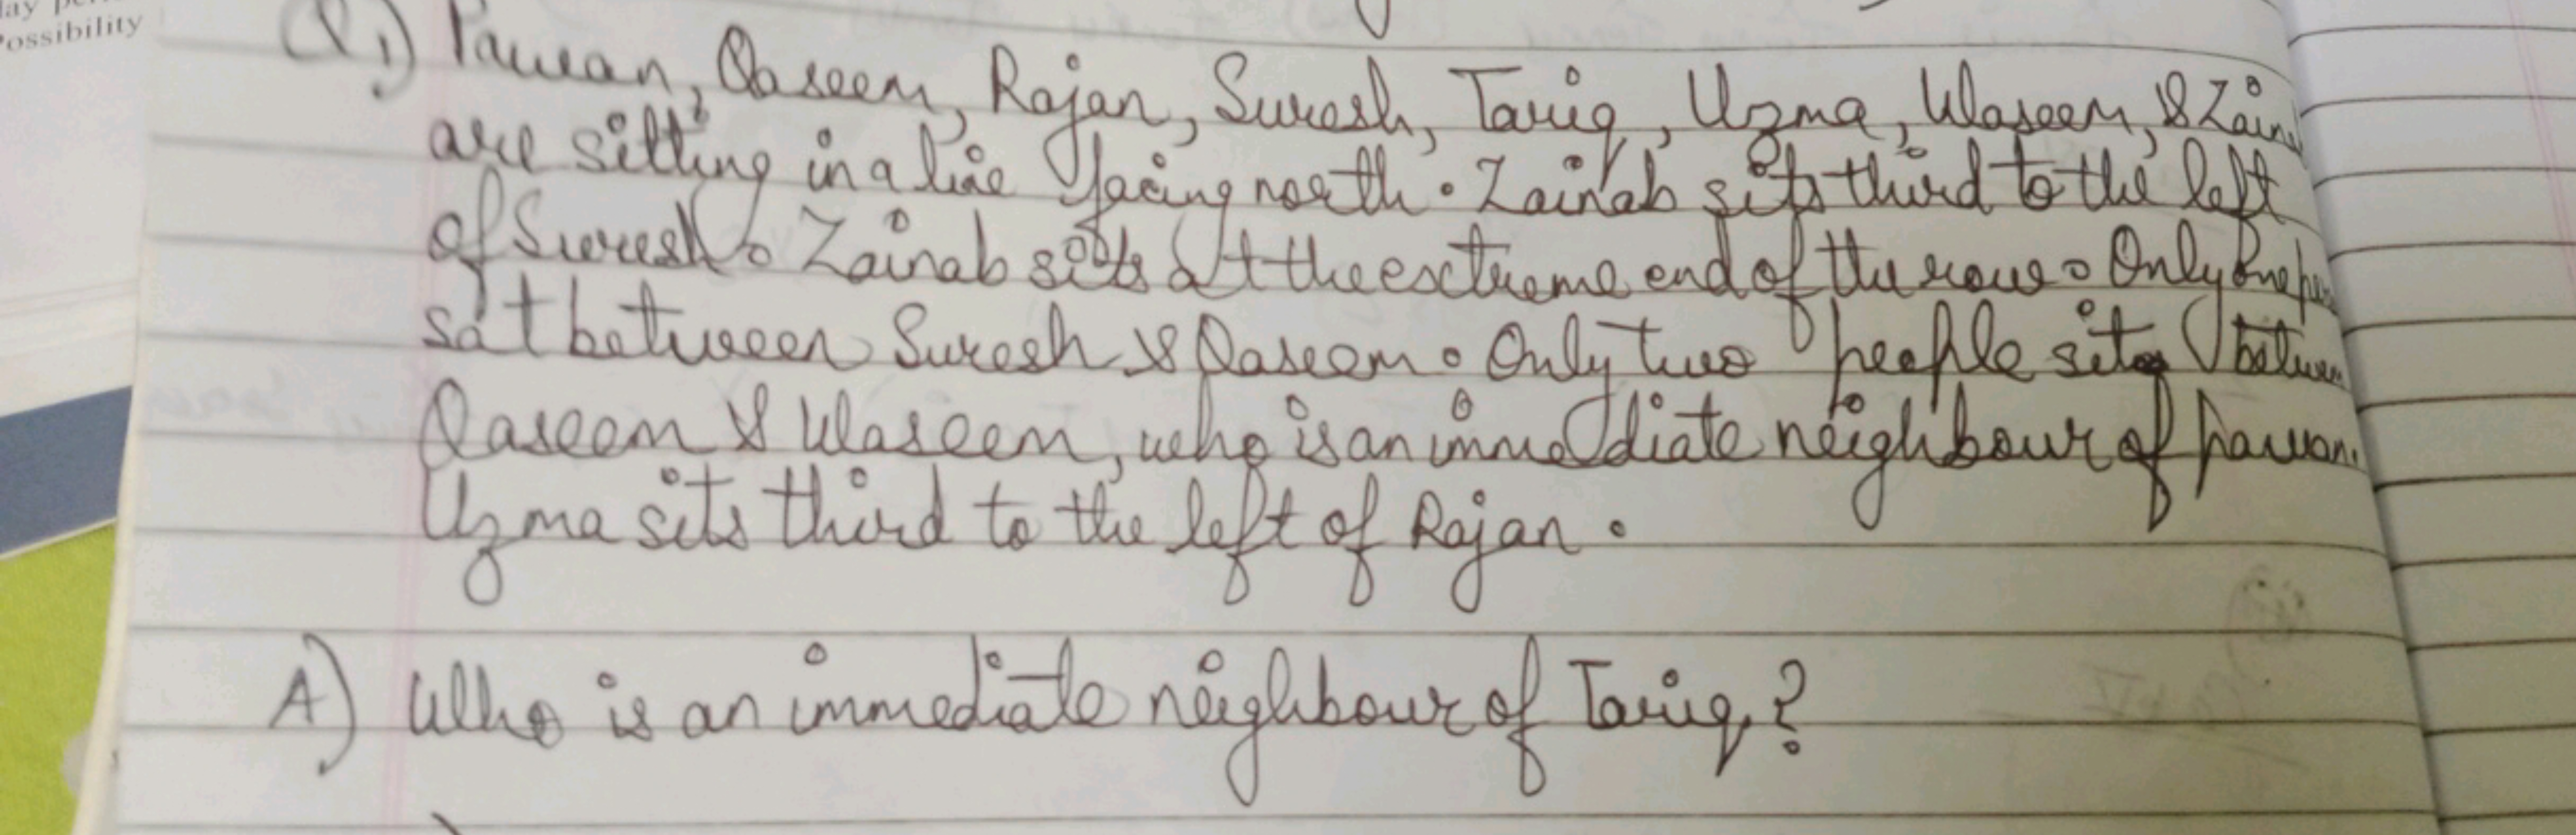 lay per
Possibility
Q1) Pawan, Qaseem, Rajan, Suresh, Tariq, Uzma, Waseem, & Zaina
are sitting in a line facing north. Zainab sits third to the left
of Suresh. Zainab sits at the extreme end of the row. Only One per
sat between Suresh & Qaseem. Only two people sits between
Qaseem & Waseem, who is an immediate neighbour of pawan.
Uzma sits third to the left of Rajan.
A) Who is an immediate neighbour of Tariq?